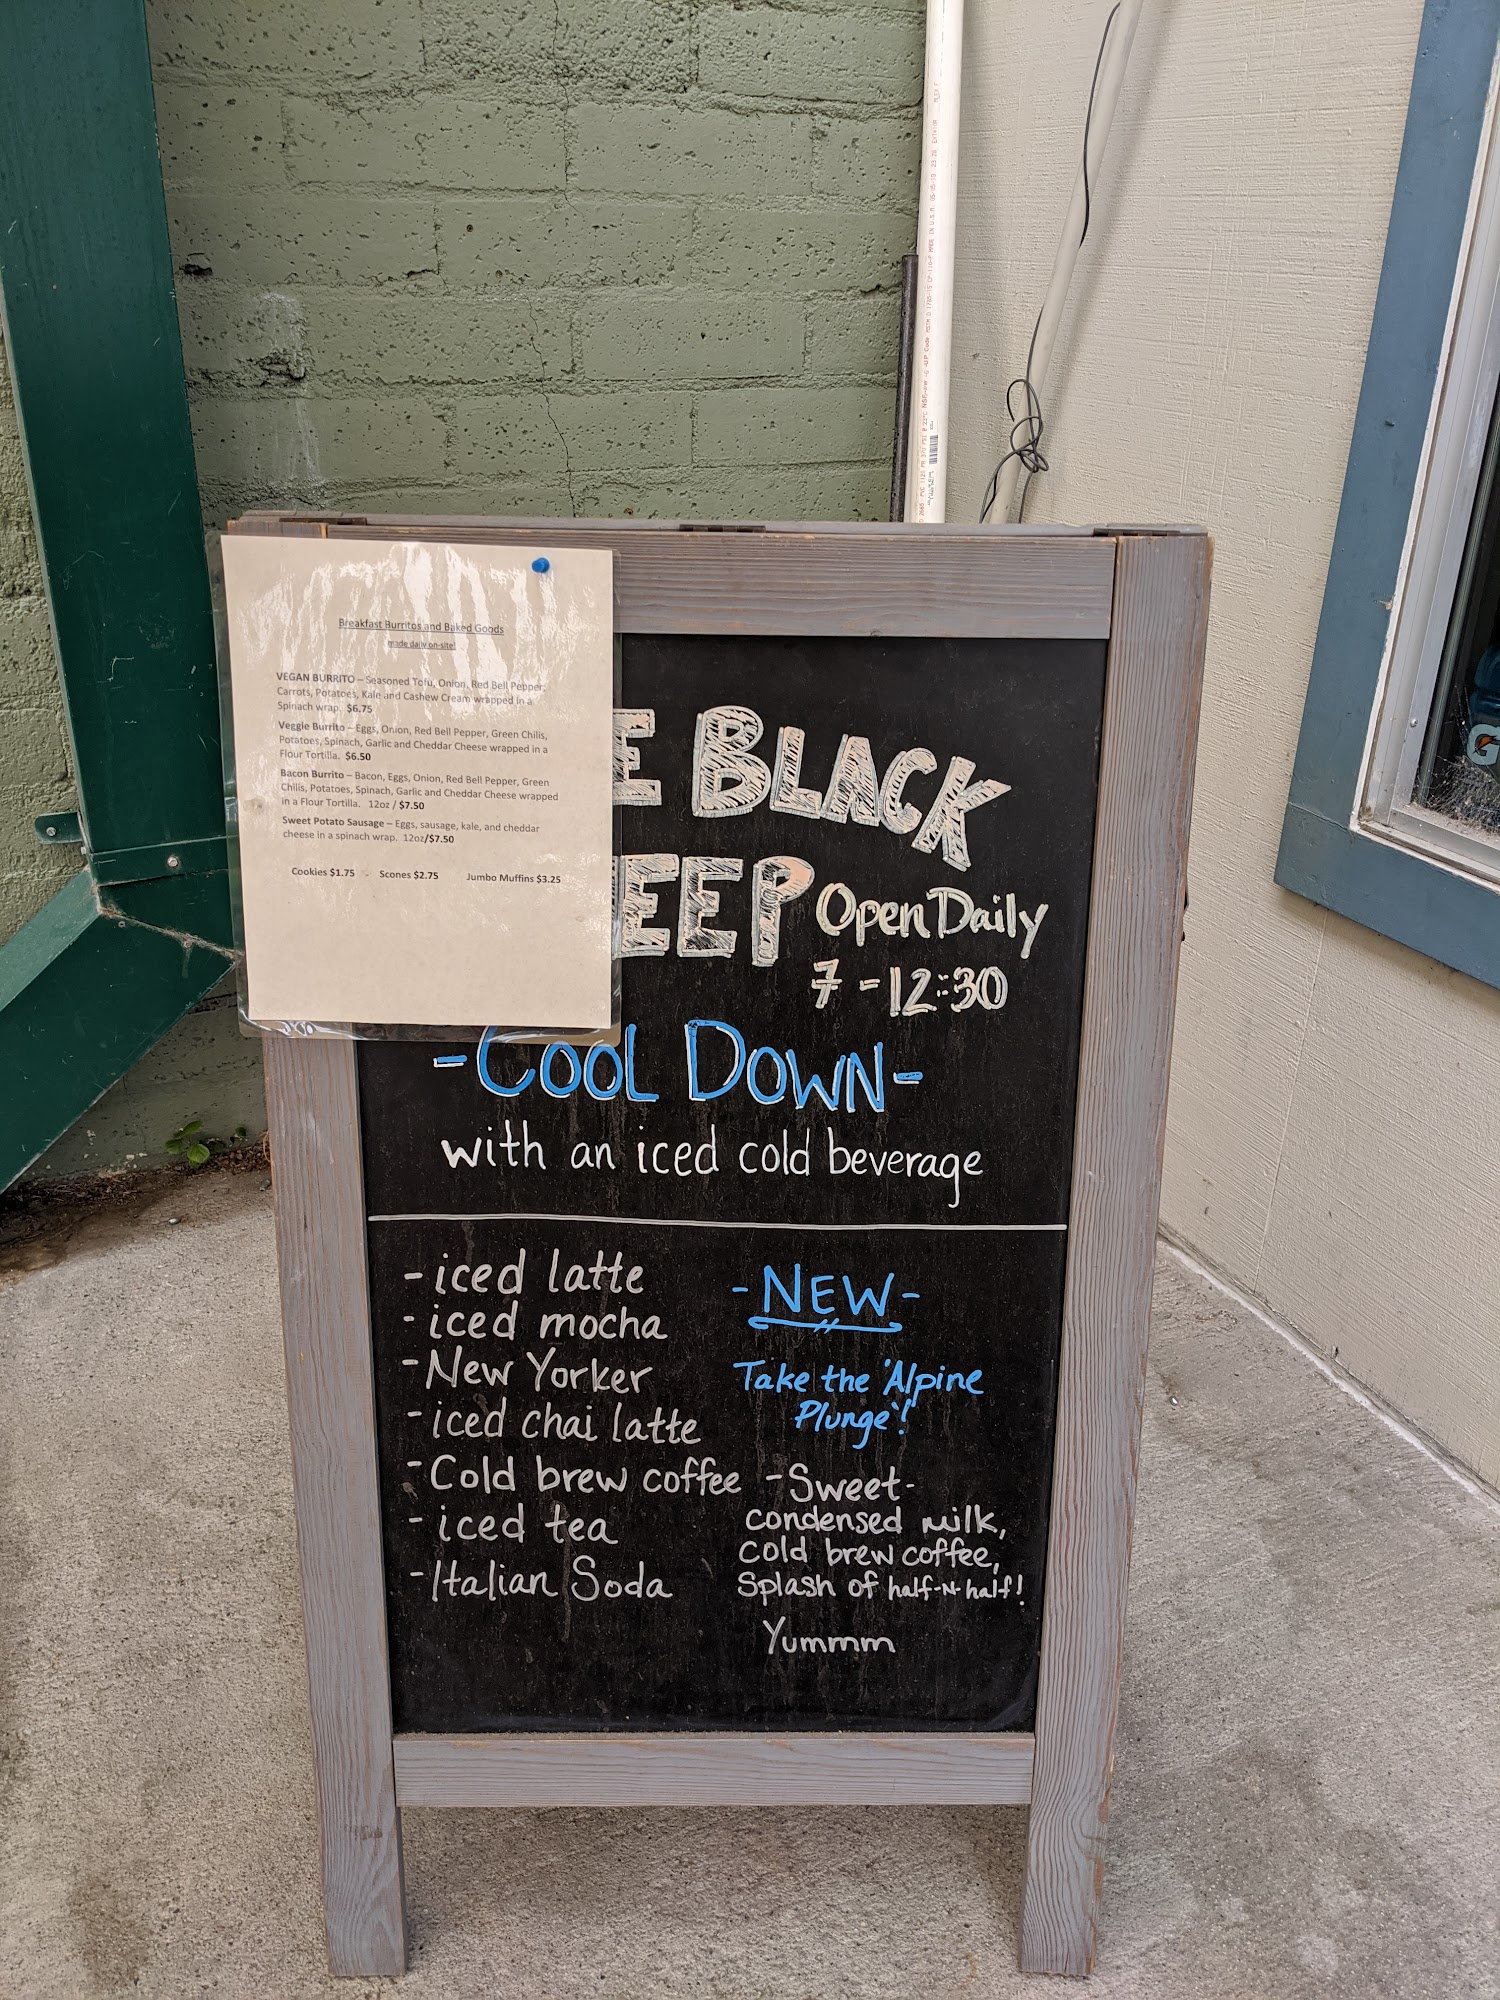 Breakfast Burritos and Baked Goods
made daily on-site!
VEGAN BURRITO – Seasoned Tofu, Onion, Red Bell Pepper,
Carrots, Potatoes, Kale and Cashew Cream wrapped in a
Spinach wrap. $6.75
Veggie Burrito – Eggs, Onion, Red Bell Pepper, Green Chilis,
Potatoes, Spinach, Garlic and Cheddar Cheese wrapped in a
Flour Tortilla. $6.50
Bacon Burrito – Bacon, Eggs, Onion, Red Bell Pepper, Green
Chilis, Potatoes, Spinach, Garlic and Cheddar Cheese wrapped
in a Flour Tortilla. 12oz / $7.50
Sweet Potato Sausage – Eggs, sausage, kale, and cheddar
cheese in a spinach wrap. 12oz/$7.50
Cookies $1.75 - Scones $2.75 Jumbo Muffins $3.25
E BLACK
EEP Open Daily
7 - 12:30
-COOL DOWN-
with an iced cold beverage
- iced latte
- iced mocha
- New Yorker
- iced chai latte
- Cold brew coffee
- iced tea
- Italian Soda
- NEW -
Take the 'Alpine
Plunge'!
- Sweet-
condensed milk,
cold brew coffee,
splash of half-N-half!
Yummm
G